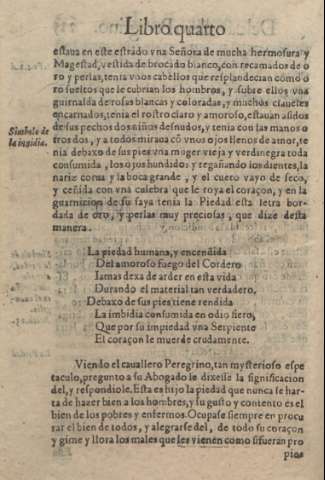 Libro quarto
estaua en este estrado vna Señora de mucha hermosura y
Magestad, vestida de brocado blanco, con recamados de o
ro y perlas, tenia vnos cabellos que resplandecian como o
ro sueltos que le cubrian los hombros, y sobre ellos vna
guirnalda de rosas blancas y coloradas, y muchos claueles
encarnados, tenia el rostro claro y amoroso, estauan asidos
de sus pechos dos niños desnudos, y tenia con las manos o
tros dos, y a todos miraua cõ vnos ojos llenos de amor, te
nia debaxo de sus pies vna muger vieja y verdinegra toda
consumida, los ojos hundidos, y regañando los dientes, la
nariz corua y la boca grande, y el cuero vayo de seco,
y ceñida con vna culebra que le roya el coraçon, y en la
guarnicion de su saya tenia la Piedad esta letra bor-
dada de oro, y perlas muy preciosas, que dize desta
manera.
Simbolo de
la inuidia.
La piedad humana, y encendida
Del amoroso fuego del Cordero
Iamas dexa de arder en esta vida
Durando el material tan verdadero,
Debaxo de sus pies tiene rendida
La imbidia consumida en odio fiero,
Que por su impiedad vna Serpiente
El coraçon le muerde crudamente.
Viendo el cauallero Peregrino, tan mysterioso espe
taculo, pregunto a su Abogado le dixesse la significacion
del, y respondiole. Esta es hijo la piedad que nunca se har-
ta de hazer bien a los hombres, y su gusto y contento es el
bien de los pobres y enfermos. Ocupase siempre en procu
rar el bien de todos, y alegrarse del, de todo su coraçon
y gime y llora los males que les vienen como si fueran pro
pios